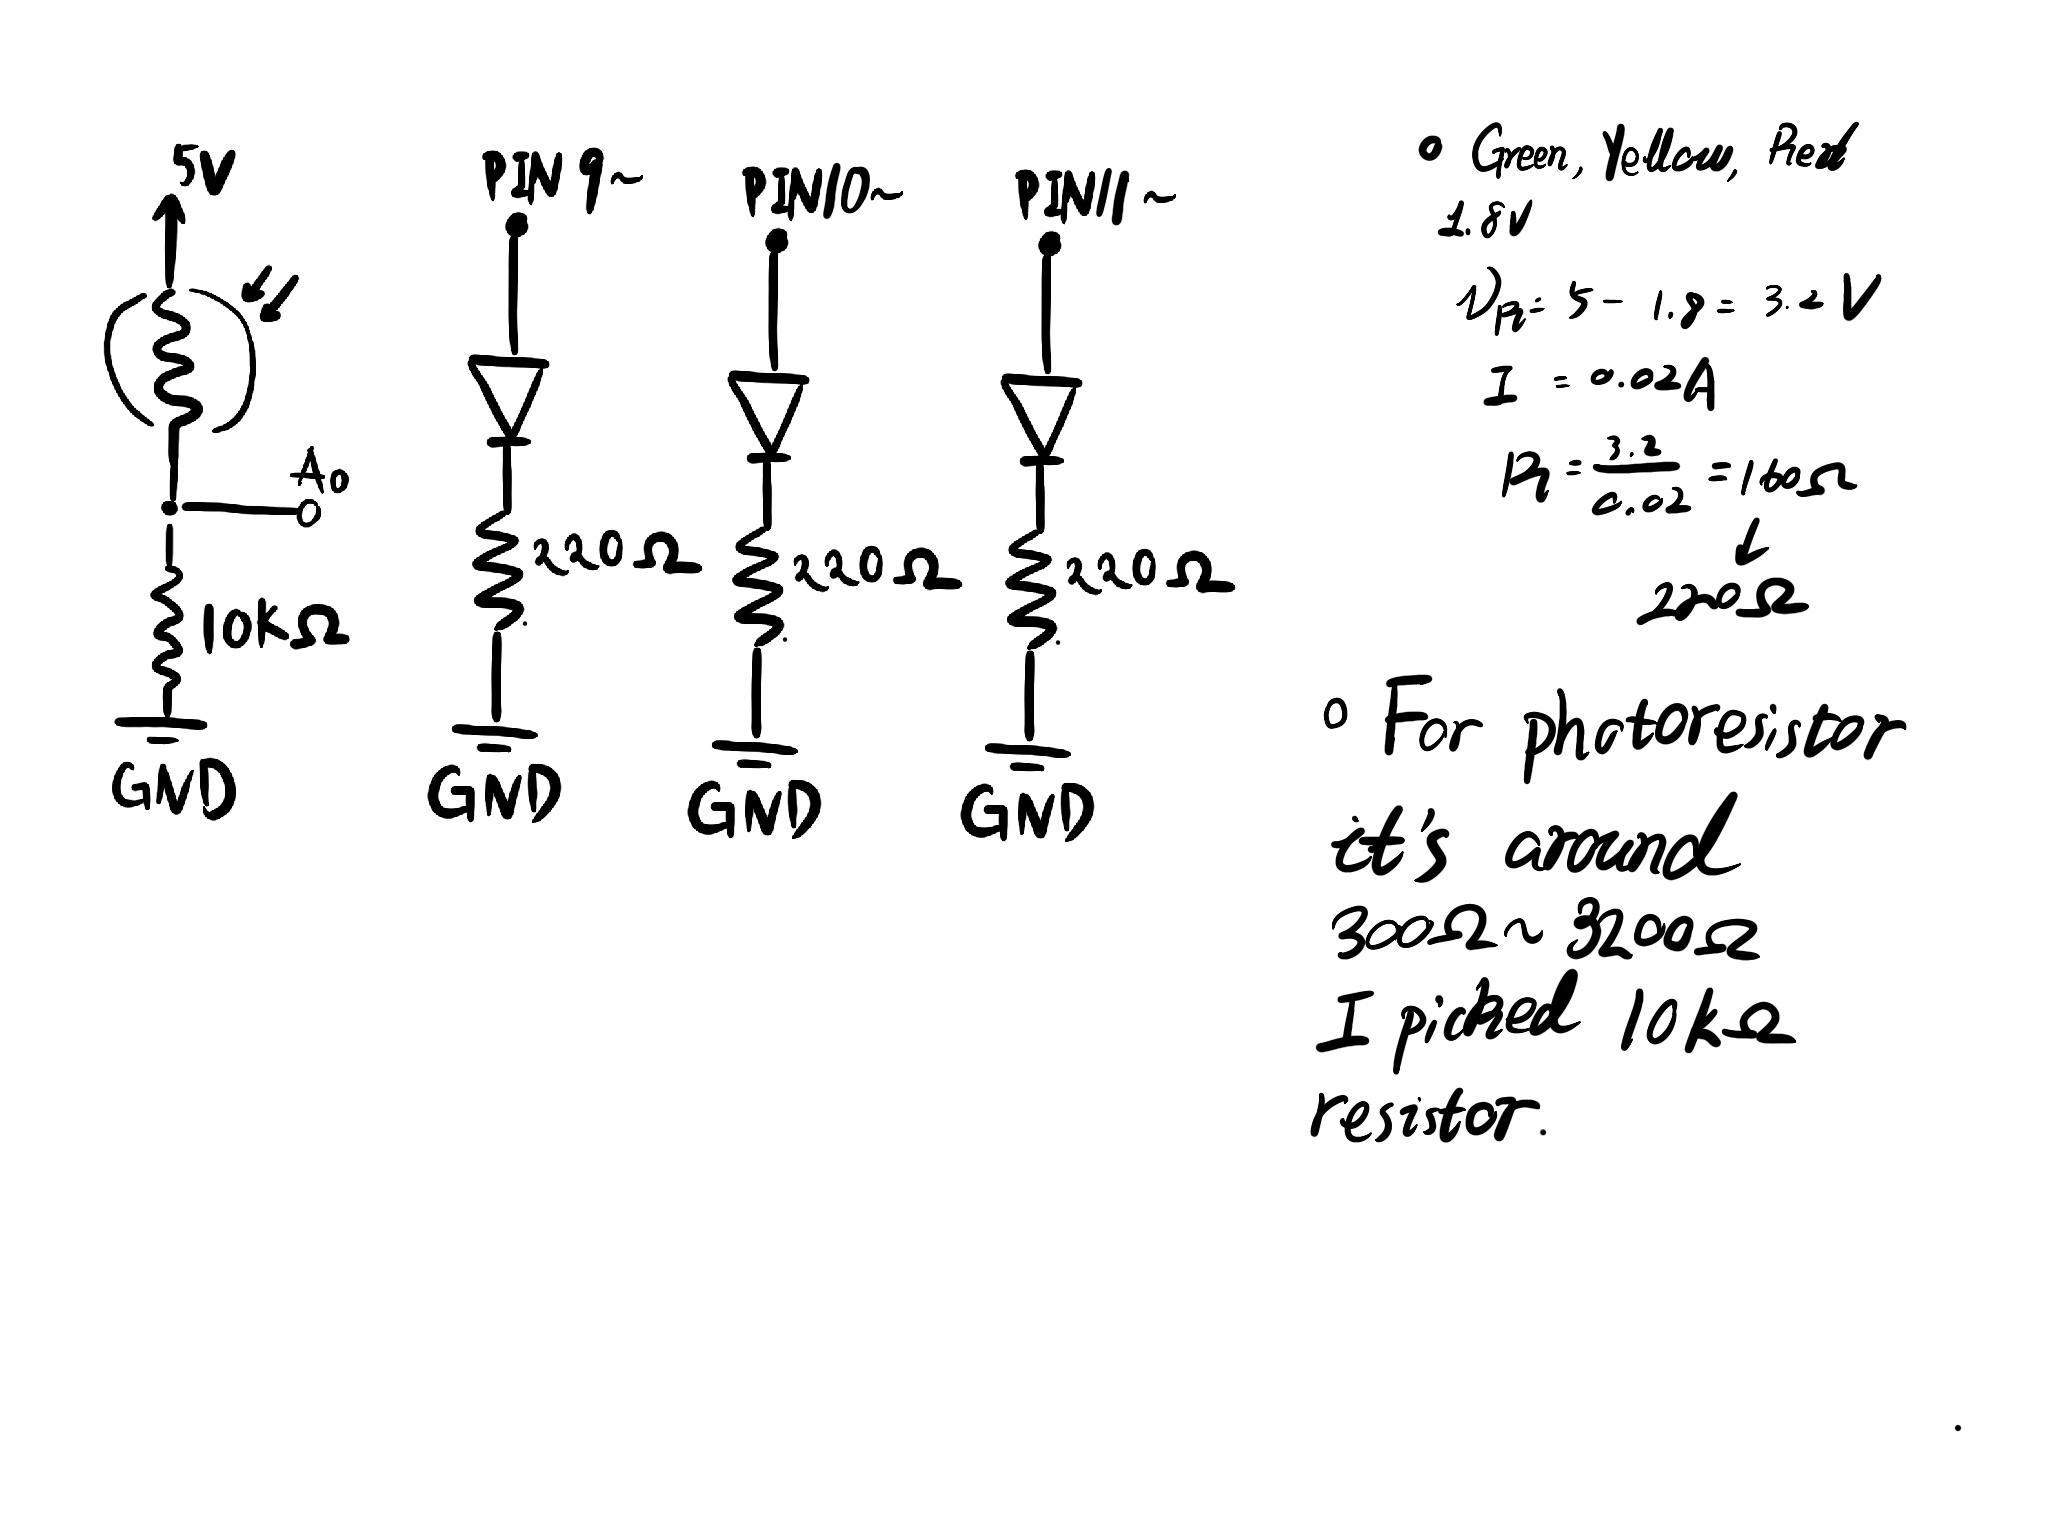 5V
A0
10kΩ
GND
PIN 9~
220Ω
GND
PIN10~
220Ω
GND
PIN11~
220Ω
GND
Green, Yellow, Red
1.8V
VR = 5 - 1.8 = 3.2 V
I = 0.02A
R = 3.2/0.02 = 160Ω
220Ω
For photoresistor
it's around
300Ω ~ 3200Ω
I picked 10kΩ
resistor.